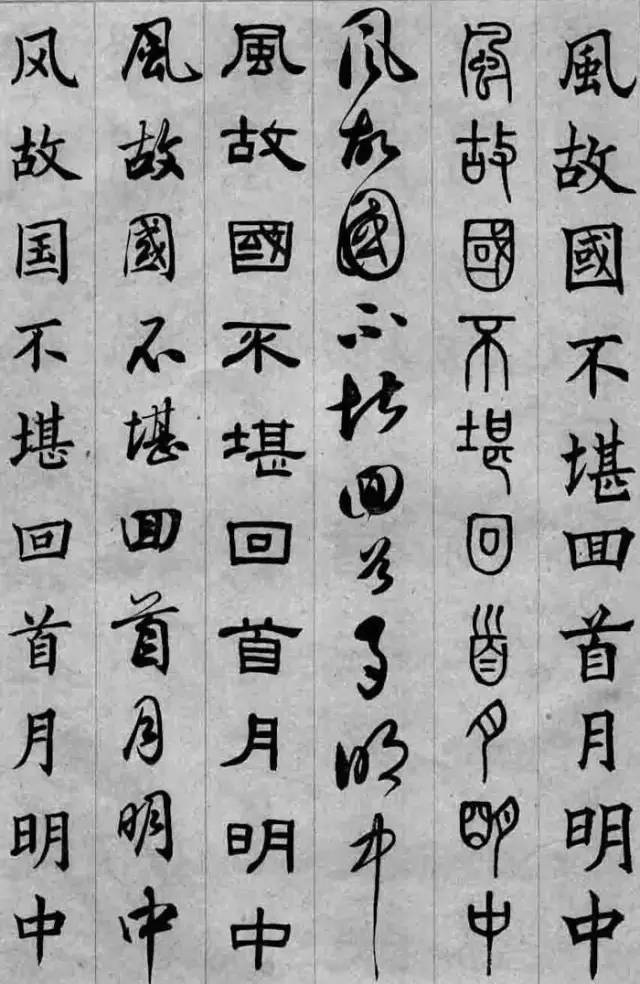 風故國不堪回首月明中
風故國不堪回首月明中
風故國不堪回首月明中
風故國不堪回首月明中
風故國不堪回首月明中
风故国不堪回首月明中